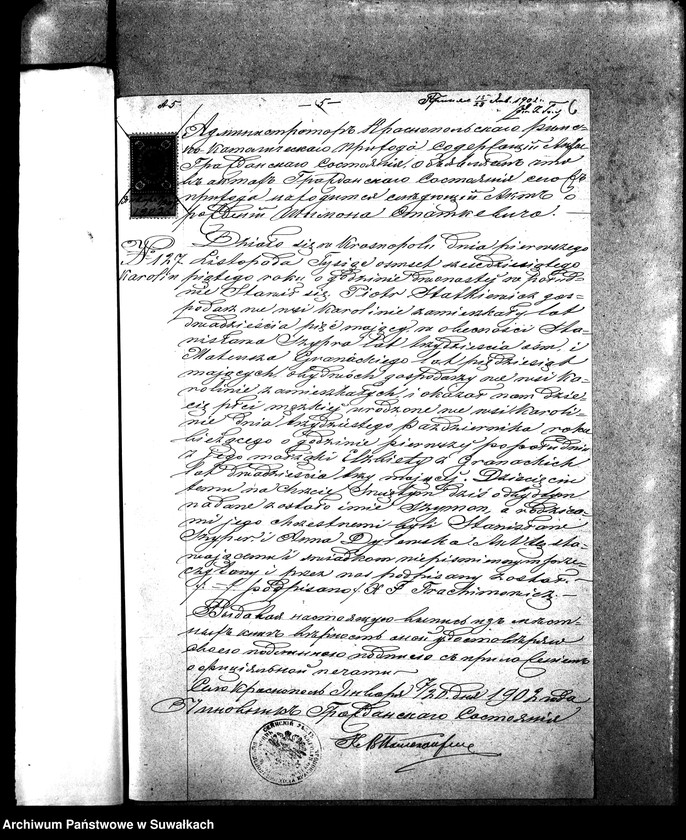 № 5
— 5 —
Администраторъ Краснопольскаго римско-
католическаго прихода Содержащій Акты
Гражданскаго Состоянія, объявляетъ что
въ актахъ Гражданскаго Состоянія сего
прихода находится слѣдующій Актъ о
рожденіи Шимона Статкевича. —
№ 127
Karolin
Działo się w Krasnopolu dnia pierwszego
Listopada Tysiąc osmset szesdziesiątego
piątego roku o godzinie dwonastej w połud-
nie Stawił się Piotr Statkiewicz gos-
podarz we wsi Karolinie zamieszkały lat
dwadzieścia pięć mający w obecności Sta-
nisława Szypra lat trzydzieścia ośm i
Mateusza Granackiego lat pięćdziesiąt
mających obydwóch gospodarzy we wsi Ka-
rolinie zamieszkałych i okazał nam dzie-
cię płci męzkiej urodzone we wsi Karoli-
nie dnia trzydziestego Października roku
bieżącego o godzinie pierwszy popołudniu
z jego małżąki Elżbiety z Granackich
lat dwadzieścia trzy mający. Dziecięciu
temu na Chrzcie Świętym dziś odbytym
nadane zostało imie Szymon, a rodzica-
mi jego chrzestnemi byli Stanisław
Szyper i Anna Dylewska Akt ten sta-
wającemu i swiadkom niepismiennym prze-
czytany i przez nas podpisany został.
podpisano/ X J Trochimowicz. —
Выдавая настоящую выпись изъ мѣст-
ныхъ книгъ вѣрность оной удостовѣряю
своею подлинною подписью съ приложеніемъ
официальной печати
Село Краснополь Января 7/20 дня 1902 года
Чиновникъ Гражданскаго Состоянія
Archiwum Państwowe w Suwałkach